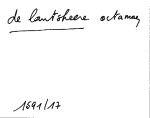 de lantsheere octamag
1691/17